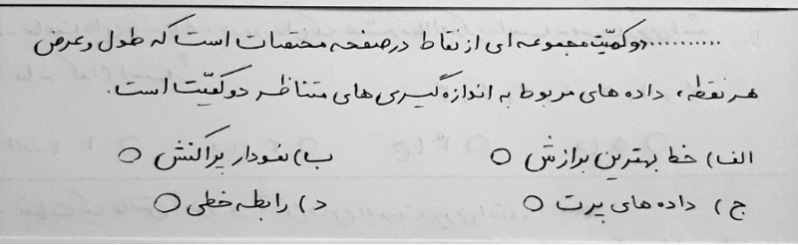 .......... دو کمیّت مجموعه ای از نقاط در صفحه مختصات است که طول و عرض
هر نقطه، داده های مربوط به اندازه گیری های متناظر دو کمیّت است.
الف) خط بهترین برازش ○ ب) نمودار پراکنش ○
ج) داده های پرت ○ د) رابطه خطی ○